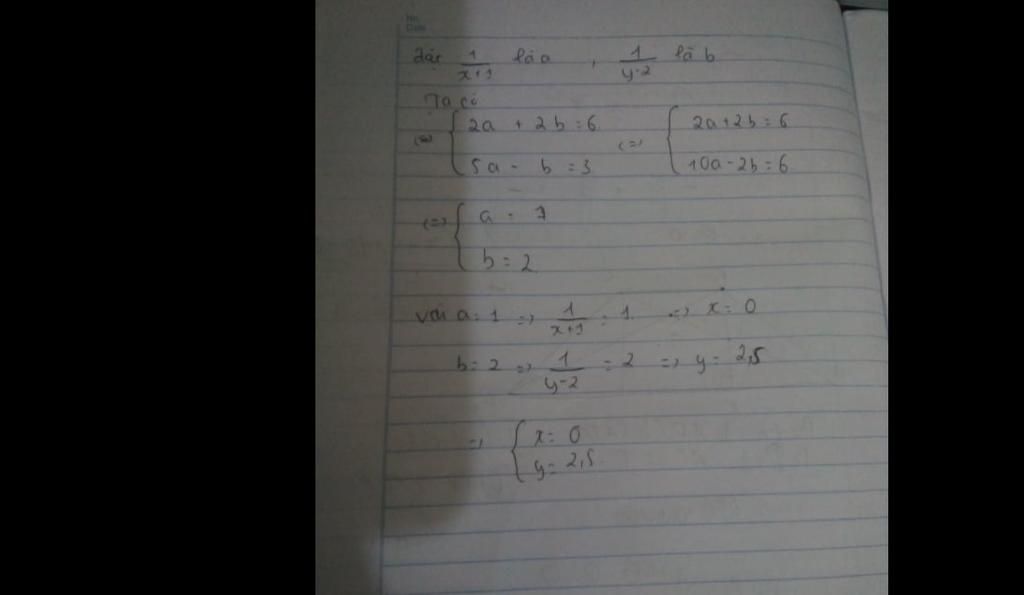 No.
Date
đặt 1/(x+1) là a , 1/(y-2) là b
Ta có
(=) { 2a + 2b = 6 (=) { 2a + 2b = 6
5a - b = 3 10a - 2b = 6
(=) { a = 1
b = 2
với a = 1 => 1/(x+1) = 1 => x = 0
b = 2 => 1/(y-2) = 2 => y = 2,5
=> { x = 0
y = 2,5